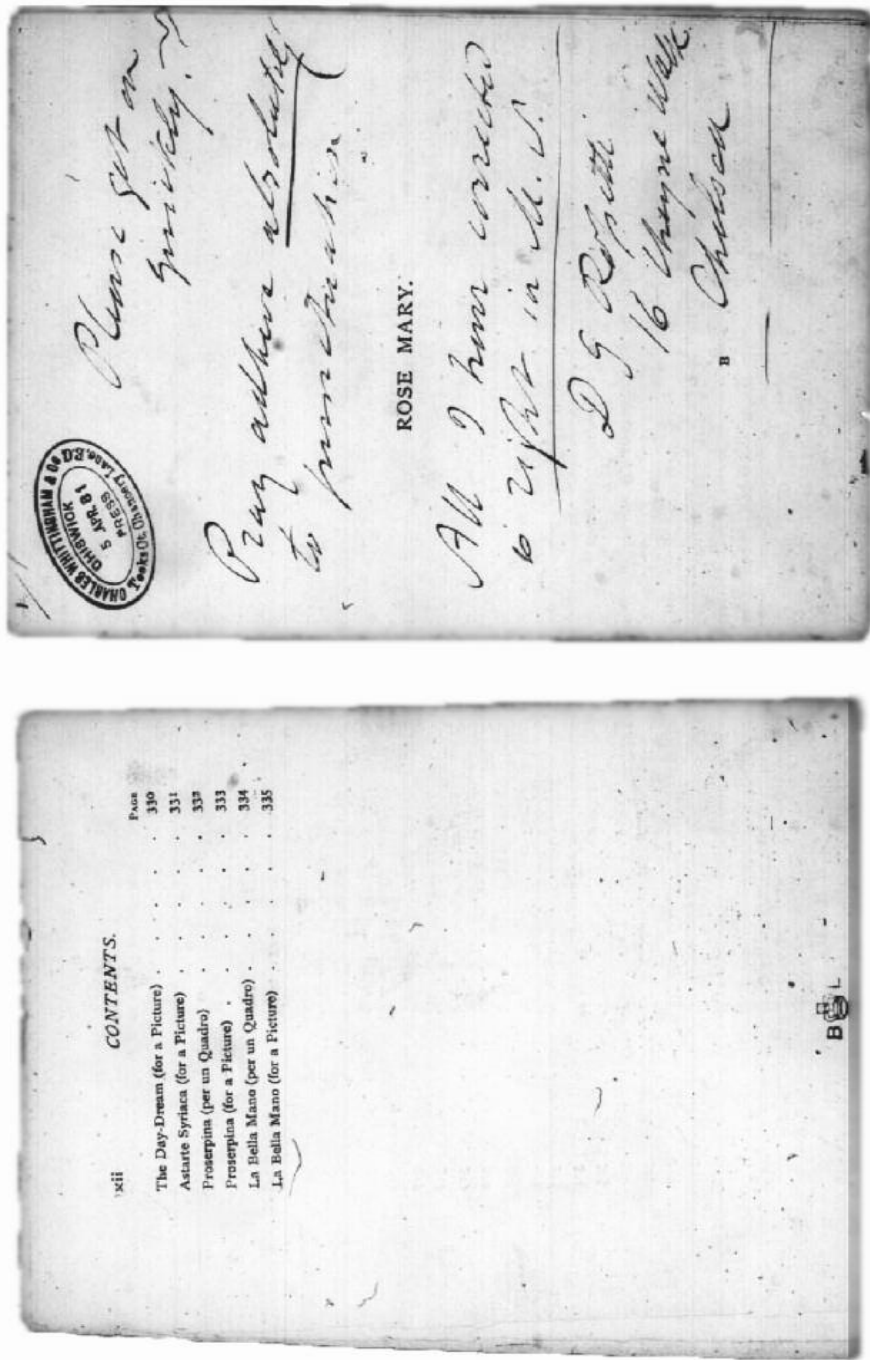 xii
CONTENTS.
PAGE
The Day-Dream (for a Picture) . . . . . 330
Astarte Syriaca (for a Picture) . . . . . 331
Proserpina (per un Quadro) . . . . . 332
Proserpina (for a Picture) . . . . . 333
La Bella Mano (per un Quadro) . . . . . 334
La Bella Mano (for a Picture) . . . . . 335
B L
CHARLES WHITTINGHAM & Co
CHISWICK
5 APR. 81
PRESS
Tooks Ct. Chancery Lane.
Please get on
quickly.
Pray adhere absolutely
to punctuation.
ROSE MARY.
All I have corrected
is right in M.S.
D G Rossetti
16 Cheyne Walk
Chelsea
B